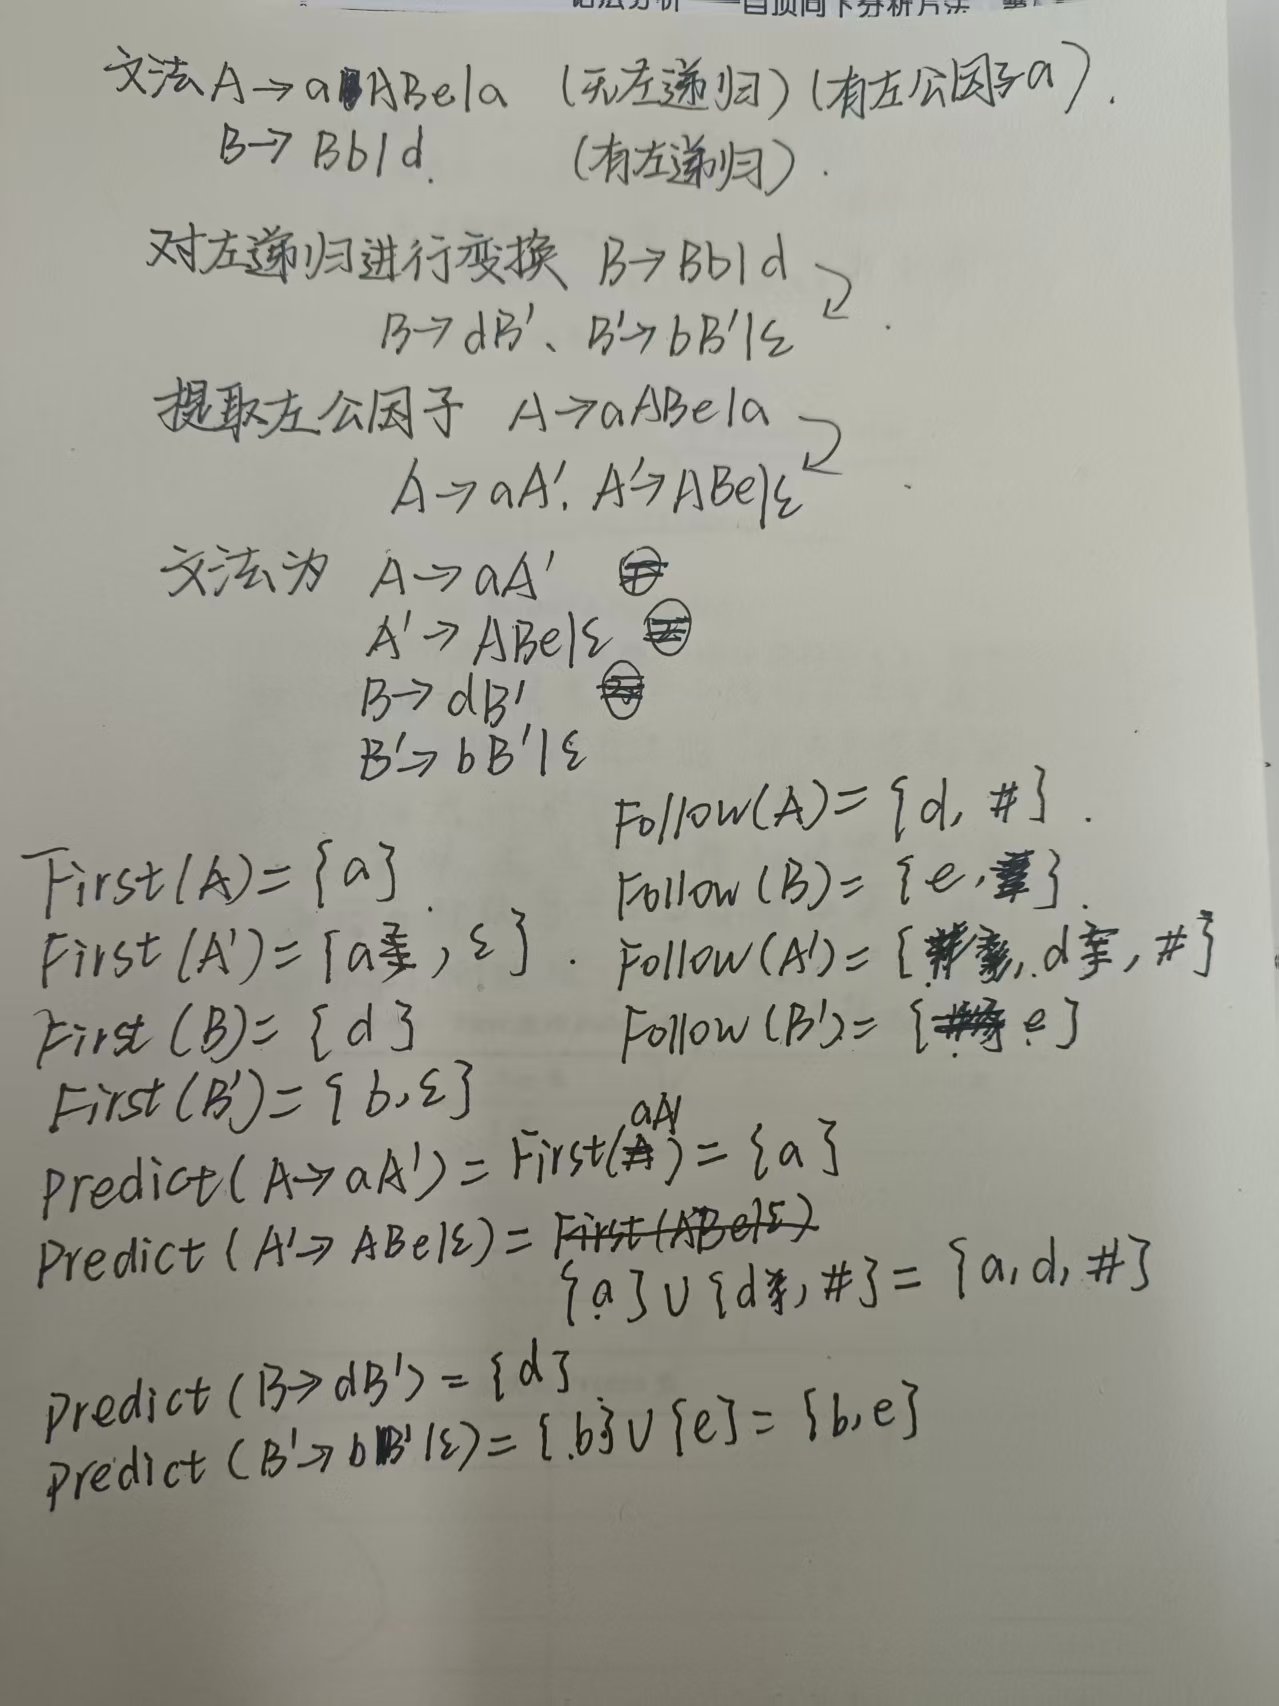 语法分析——自顶向下分析方法
文法A→aABe|a (无左递归)(有左公因子a).
B→Bb|d. (有左递归).
对左递归进行变换 B→Bb|d
B→dB'、B'→bB'|ε
提取左公因子 A→aABe|a
A→aA'. A'→ABe|ε
文法为 A→aA'
A'→ABe|ε
B→dB'
B'→bB'|ε
Follow(A)={d, #}.
First(A)={a}.
Follow(B)={e, }.
First(A')={a, ε}.
Follow(A')={d, #}
First(B)={d}
Follow(B')={e}
First(B')={b,ε}
aA'
Predict(A→aA')=First(A)={a}
Predict(A'→ABe|ε)=First(ABe|ε)
{a}∪{d, #}={a, d, #}
Predict(B→dB')={d}
Predict(B'→bB'|ε)={b}∪{e}={b,e}